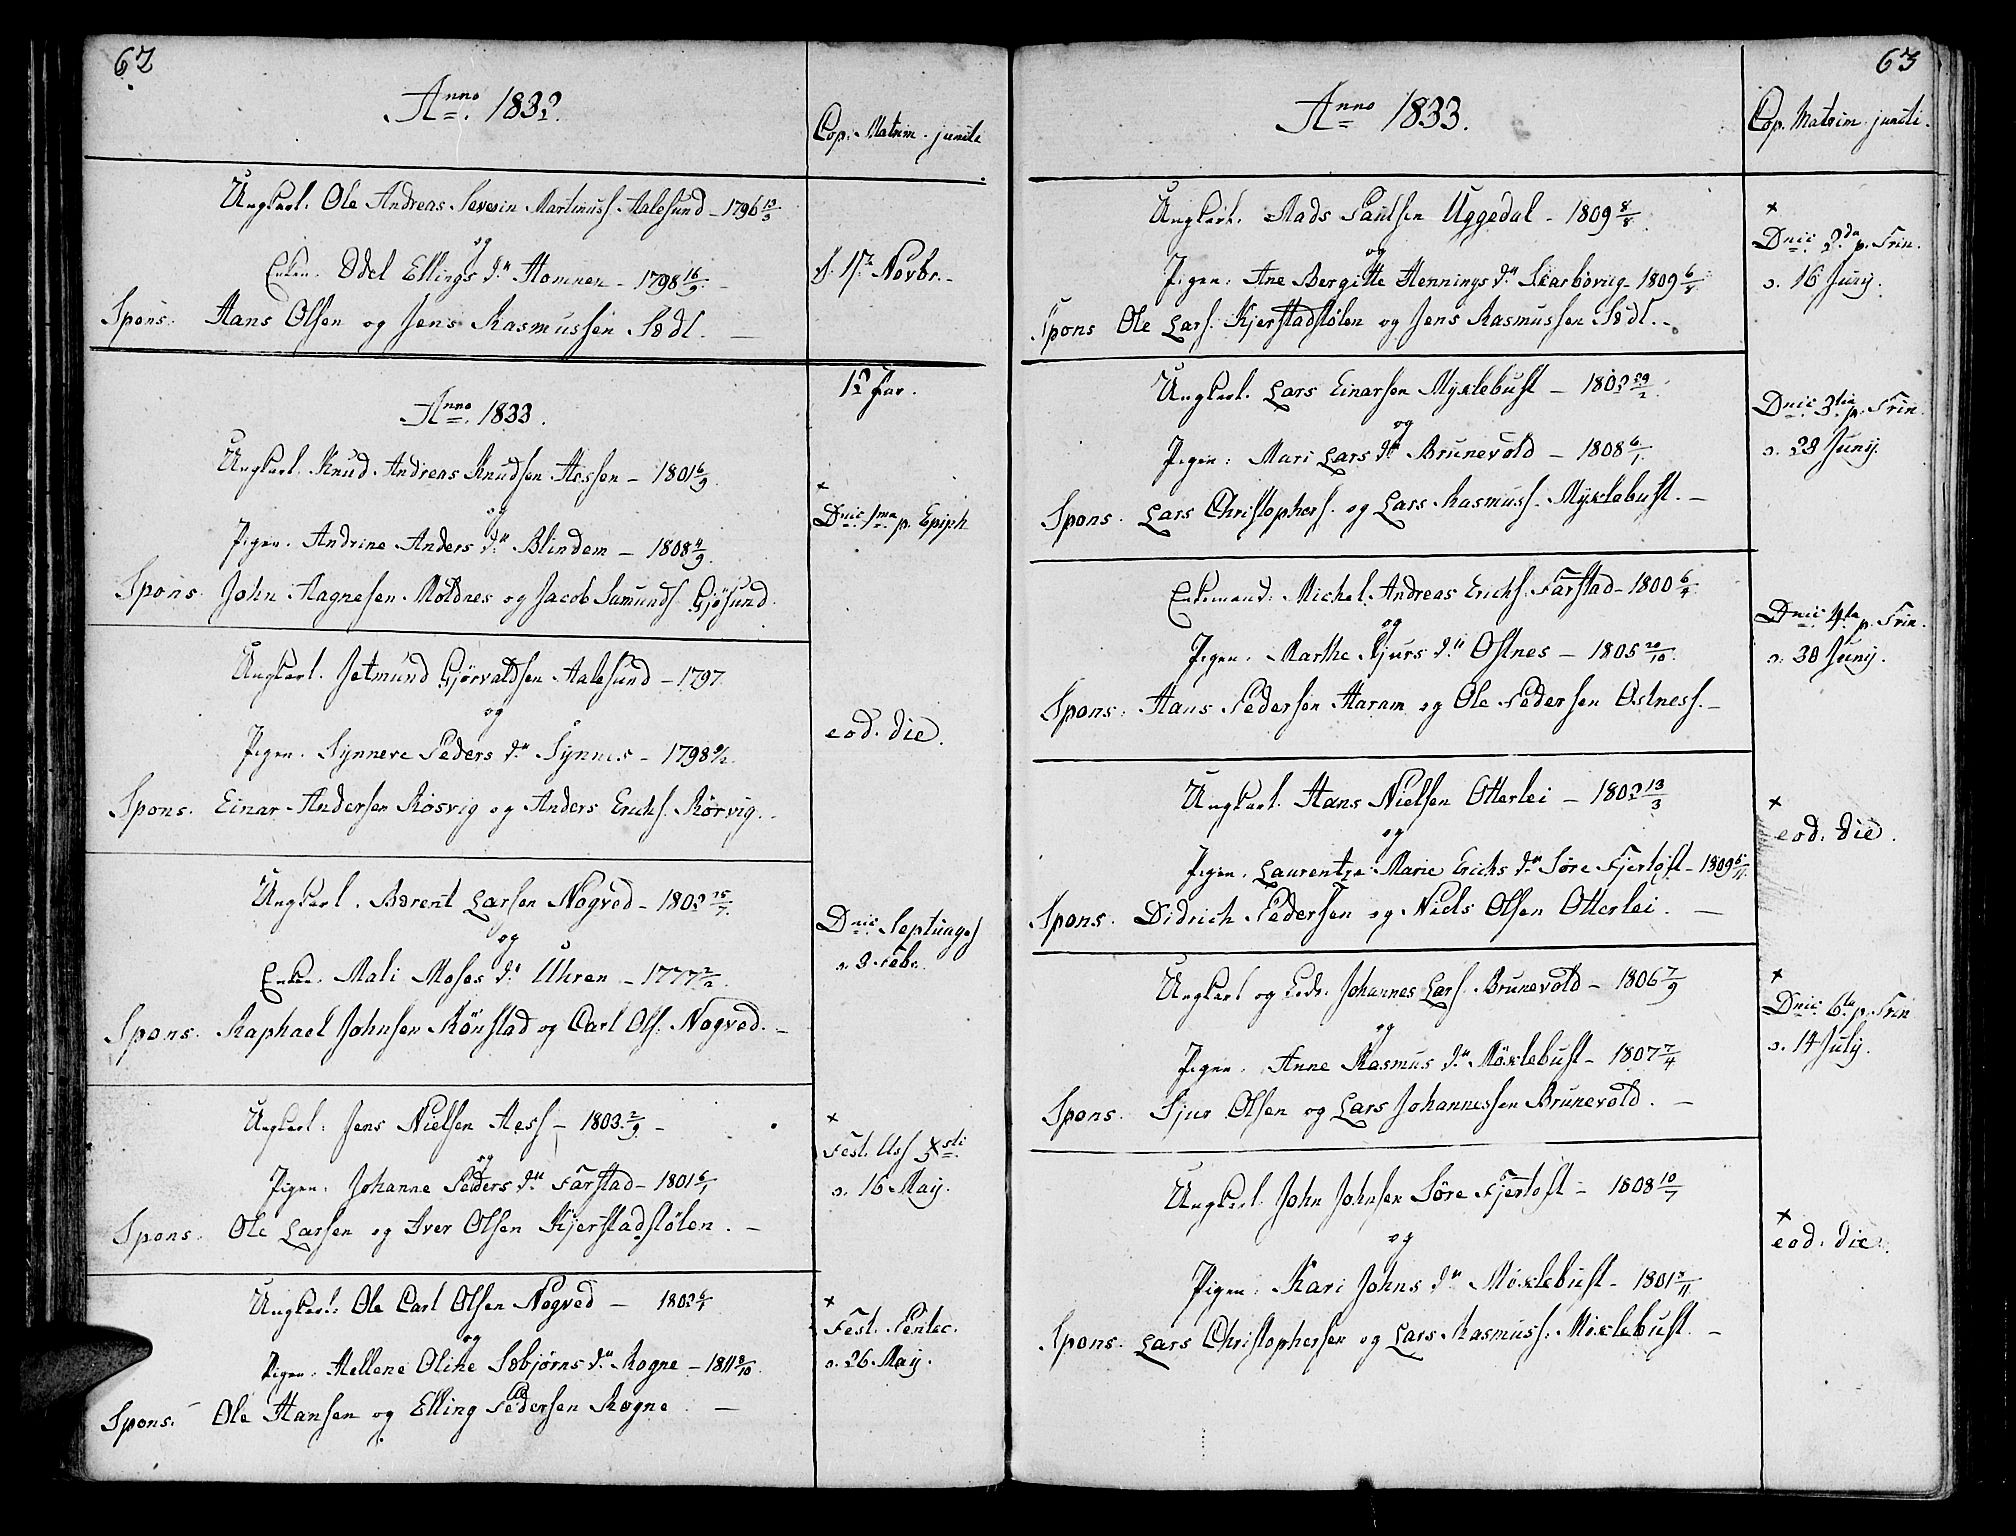 62
Anno 1832.
Cop. Matrim. juncti
Ungkarl. Ole Andreas Severin Martinuss. Aalesund - 1796 13/3
og
Enken. Odel Ellings d:r Homnen - 1798 16/9. -
d. 15de Novbr. -
Spons. Hans Olsen og Jens Rasmussen Sædl. -
12 Par.
Anno 1833.
Ungkarl. Knud Andreas Knudsen Hessen - 1801 6/9.
og
Pigen. Andrine Anders d:r Blindem - 1808 4/9.
Spons. John Aagnesen Moldnes og Jacob Samunds. Gjøsund.
x
Dnic. 1ma p. Epiph
Ungkarl. Jetmund Gjørvaldsen Aalesund - 1797.
og
Pigen. Synneve Peders d:r Synnes - 1798
Spons. Einar Andersen Røsvig og Anders Erichs. Rørvig. -
eod. die.
Ungkarl. Berent Larsen Nogved - 1802 25/7.
og
Enken. Mali Moses d:r Uhren - 1777
Spons. Raphael Johnsen Rønstad og Carl Ols. Nogved. -
Dnic. Septuages
d. 3 Febr.
Ungkarl. Jens Nielsen Hess - 1803 2/9 -
og
Pigen. Johanne Peders d:r Farstad - 1801 6/1
Spons. Ole Larsen og Iver Olsen Kjerstadstølen. -
x
Fest. Ass. Xsti
d. 16 May.
Ungkarl. Ole Carl Olsen Nogved - 1802
og
Pigen. Hellene Oline Sæbjørns d:r Rogne - 1811 8/10.
Spons. Ole Hansen og Elling Pedersen Rogne. -
x
Fest. Pentec.
d. 26 May.
63
Anno 1833.
Cop. Matrim. juncti.
Ungkarl. Mads Paulsen Uggedal - 1809 8/8.
og
Pigen. Ane Bergitte Hennings d:r Skarbøvig - 1809 6/8
Spons Ole Lars. Kjerstadstølen og Jens Rasmussen Sædl. -
x
Dnic. 2da p. Trin.
d. 16 Juny.
Ungkarl. Lars Einarsen Myklebust - 1802 29/2.
og
Pigen. Mari Lars d:r Brunevold - 1808 6/1.
Spons. Lars Christophers. og Lars Rasmuss. Myklebust. -
Dnic. 3tia p. Trin.
d. 23 Juny.
Enkemand. Michel Andreas Erichs. Farstad - 1800 6/4.
og
Pigen. Marthe Sjurs d:r Ostnes - 1805 20/10.
Spons. Hans Pedersen Haram og Ole Pedersen Ostness. -
Dnic. 4ta p. Trin.
d. 30 Juny.
Ungkarl. Hans Nielsen Otterlei - 1802 13/3
og
Pigen. Laurentze Marie Erichs d:r Søre Fjertoft - 1809 5/11.
Spons. Didrich Pedersen og Niels Olsen Otterlei. -
x
eod. die.
Ungkarl og Leds. Johannes Lars. Brunevold - 1806 7/9
og
Pigen. Anne Rasmus d:r Møklebust - 1807 7/4
Spons. Sjur Olsen og Lars Johannessen Brunevold. -
x
Dnic. 6ta p. Trin
d. 14 July.
Ungkarl. John Johnsen Søre Fjertoft - 1808 10/7
og
Pigen. Kari Johns d:r Møklebust - 1801
Spons. Lars Christophersen og Lars Rasmuss. Møklebust. -
x
eod. die.